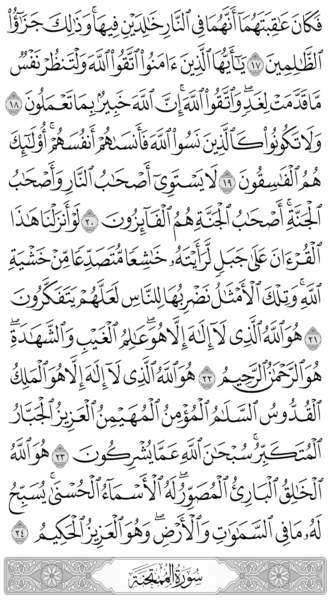 فَكَانَ عَٰقِبَتَهُمَآ أَنَّهُمَا فِي ٱلنَّارِ خَٰلِدَيۡنِ فِيهَاۚ وَذَٰلِكَ جَزَٰٓؤُاْ
ٱلظَّٰلِمِينَ ١٧ يَٰٓأَيُّهَا ٱلَّذِينَ ءَامَنُواْ ٱتَّقُواْ ٱللَّهَ وَلۡتَنظُرۡ نَفۡسٞ
مَّا قَدَّمَتۡ لِغَدٖۖ وَٱتَّقُواْ ٱللَّهَۚ إِنَّ ٱللَّهَ خَبِيرُۢ بِمَا تَعۡمَلُونَ ١٨
وَلَا تَكُونُواْ كَٱلَّذِينَ نَسُواْ ٱللَّهَ فَأَنسَىٰهُمۡ أَنفُسَهُمۡۚ أُوْلَٰٓئِكَ
هُمُ ٱلۡفَٰسِقُونَ ١٩ لَا يَسۡتَوِيٓ أَصۡحَٰبُ ٱلنَّارِ وَأَصۡحَٰبُ
ٱلۡجَنَّةِۚ أَصۡحَٰبُ ٱلۡجَنَّةِ هُمُ ٱلۡفَآئِزُونَ ٢٠ لَوۡ أَنزَلۡنَا هَٰذَا
ٱلۡقُرۡءَانَ عَلَىٰ جَبَلٖ لَّرَأَيۡتَهُۥ خَٰشِعٗا مُّتَصَدِّعٗا مِّنۡ خَشۡيَةِ
ٱللَّهِۚ وَتِلۡكَ ٱلۡأَمۡثَٰلُ نَضۡرِبُهَا لِلنَّاسِ لَعَلَّهُمۡ يَتَفَكَّرُونَ
٢١ هُوَ ٱللَّهُ ٱلَّذِي لَآ إِلَٰهَ إِلَّا هُوَۖ عَٰلِمُ ٱلۡغَيۡبِ وَٱلشَّهَٰدَةِۖ
هُوَ ٱلرَّحۡمَٰنُ ٱلرَّحِيمُ ٢٢ هُوَ ٱللَّهُ ٱلَّذِي لَآ إِلَٰهَ إِلَّا هُوَ ٱلۡمَلِكُ
ٱلۡقُدُّوسُ ٱلسَّلَٰمُ ٱلۡمُؤۡمِنُ ٱلۡمُهَيۡمِنُ ٱلۡعَزِيزُ ٱلۡجَبَّارُ
ٱلۡمُتَكَبِّرُۚ سُبۡحَٰنَ ٱللَّهِ عَمَّا يُشۡرِكُونَ ٢٣ هُوَ ٱللَّهُ
ٱلۡخَٰلِقُ ٱلۡبَارِئُ ٱلۡمُصَوِّرُۖ لَهُ ٱلۡأَسۡمَآءُ ٱلۡحُسۡنَىٰۚ يُسَبِّحُ
لَهُۥ مَا فِي ٱلسَّمَٰوَٰتِ وَٱلۡأَرۡضِۖ وَهُوَ ٱلۡعَزِيزُ ٱلۡحَكِيمُ ٢٤
سُورَةُ المُمۡتَحنَةِ